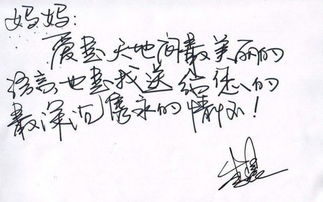 妈妈:
爱是天地间最美丽的
语言也是我送给您的
最深沉隽永的情怀!